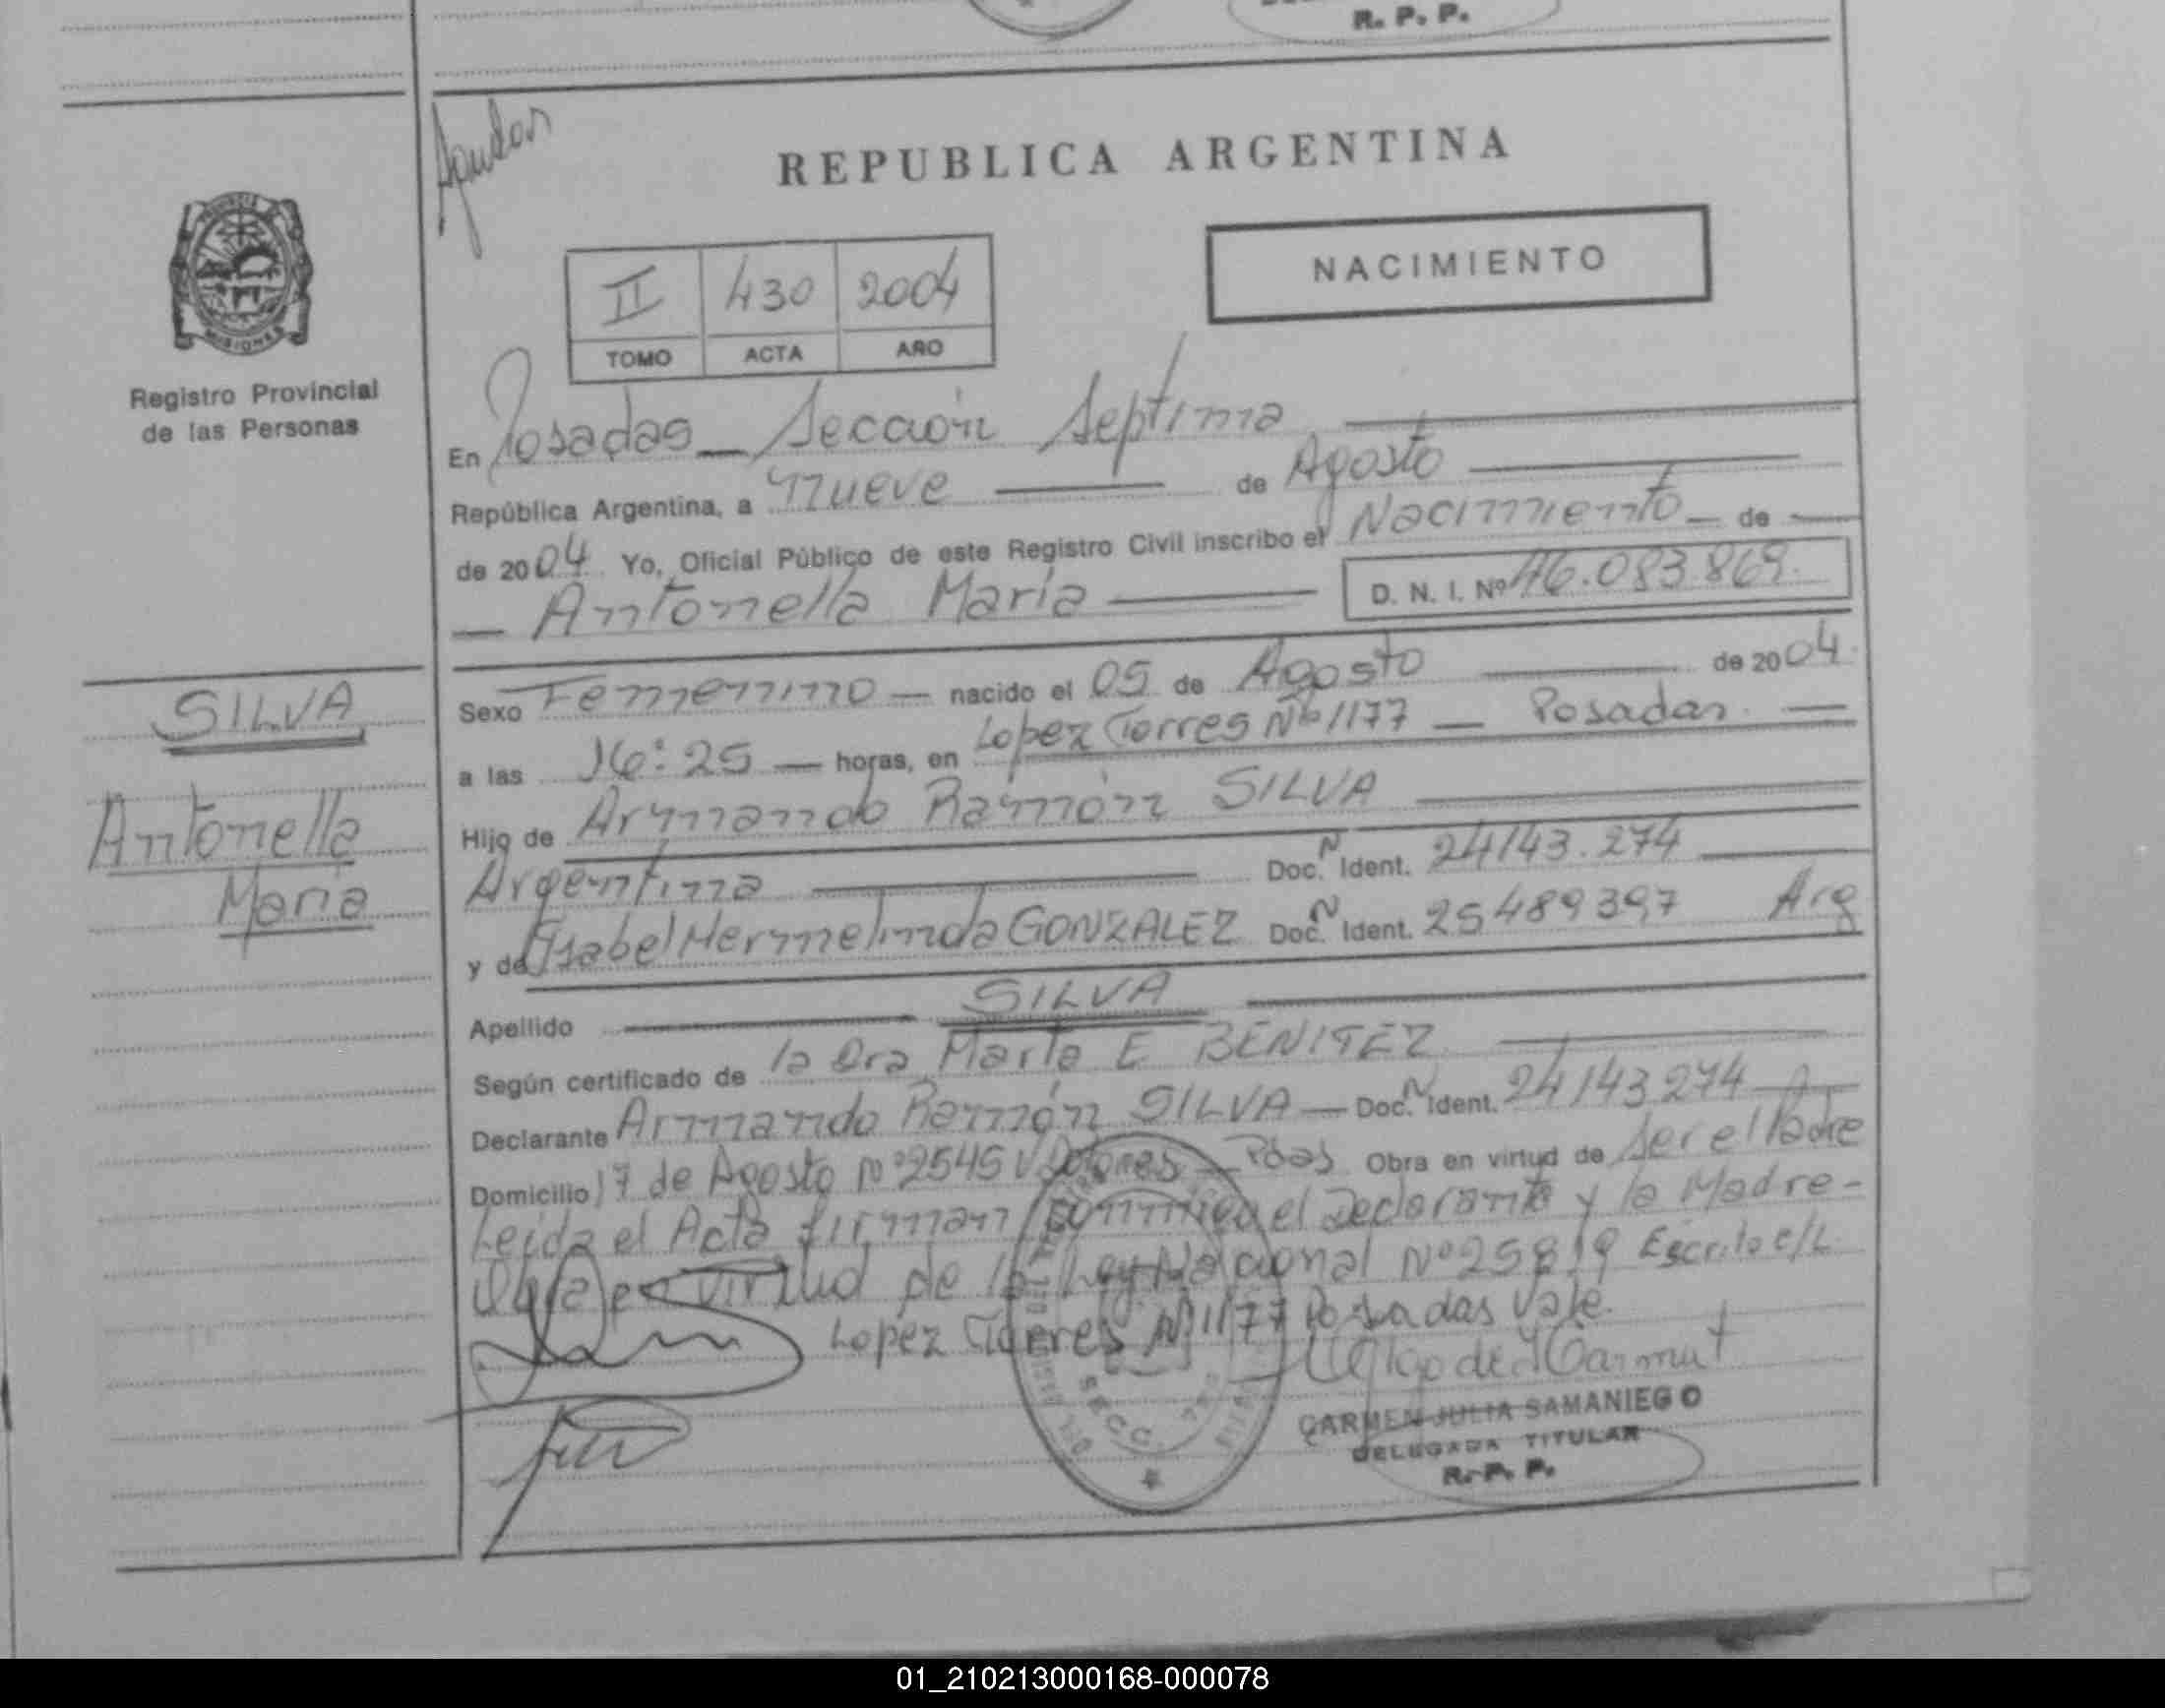 R. P. P.
REPUBLICA ARGENTINA
NACIMIENTO
II 430 2004
TOMO ACTA AÑO
Registro Provincial
de las Personas
MISIONES
En Posadas Sección Septima
República Argentina, a nueve de Agosto
de 2004 Yo, Oficial Público de este Registro Civil inscribo el Nacimiento de
Antonella María D. N. I. Nº 46.083.869.
SILVA
Antonella
María
Sexo Femenino nacido el 05 de Agosto de 2004.
a las 16:25 horas, en Lopez Torres Nº 1177 Posadas.
Hijo de Armando Ramón SILVA
Argentina Doc. N Ident. 24143.274
y de Isabel Hermelinda GONZALEZ Doc. N Ident. 25489397 Arg
Apellido SILVA
Según certificado de la Dra Marta E BENITEZ
Declarante Armando Ramón SILVA Doc. N Ident. 24143274
Domicilio 17 de Agosto Nº 2545 Pdas Obra en virtud de ser el Padre
Leida el Acta firman conmigo el Declarante y la Madre-
en virtud de la Ley Nacional Nº 25819 Escrito e/L
Lopez Torres Nº 1177 Posadas Vale.
SECC.
CARMEN JULIA SAMANIEGO
DELEGADA TITULAR
R. P. P.
01_210213000168-000078